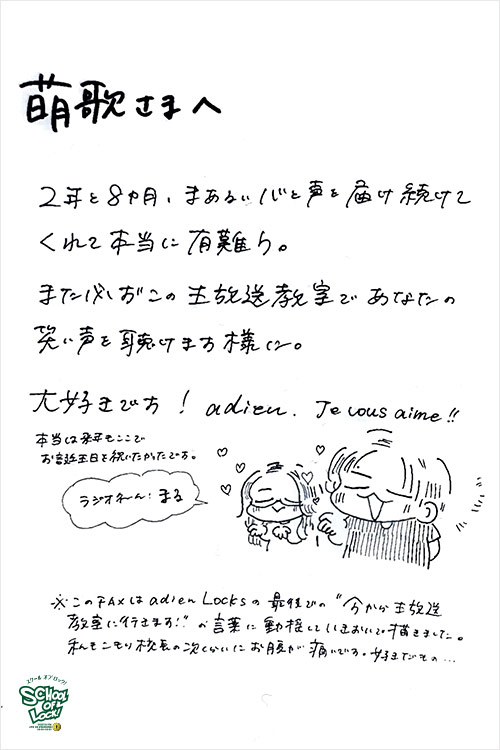 萌歌さまへ
2年と8カ月、まあるい心と声を届け続けて
くれて本当に有難う。
また必ずこの生放送教室であなたの
笑い声を聴けます様に。
大好きです! adieu. Je vous aime!!
本当は来年もここで
お誕生日を祝いたかったです。
ラジオネーム:まる
※このFAXは adieu Locksの最後の"今から生放送
教室に行きます!"の言葉に動揺していきおいで描きました。
私もこもり校長の次くらいにお腹が痛いです。好きだもの…
スクール オブ ロック!
SCHOOL
OF
LOCK!